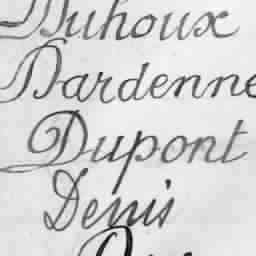 Duhoux
Dardenne
Dupont
Denis